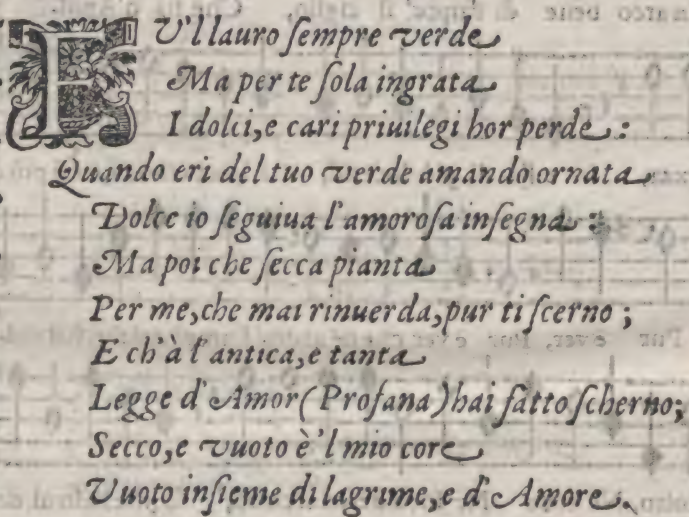 FV'l lauro sempre verde
Ma per te sola ingrata
I dolci, e cari priuilegi hor perde :
Quando eri del tuo verde amando ornata
Dolce io seguiua l'amorosa insegna :
Ma poi che secca pianta
Per me, che mai rinuerda, pur ti scerno ;
E ch'à l'antica, e tanta
Legge d'Amor (Profana) hai fatto scherno;
Secco, e vuoto è 'l mio core
Vuoto insieme di lagrime, e d'Amore.